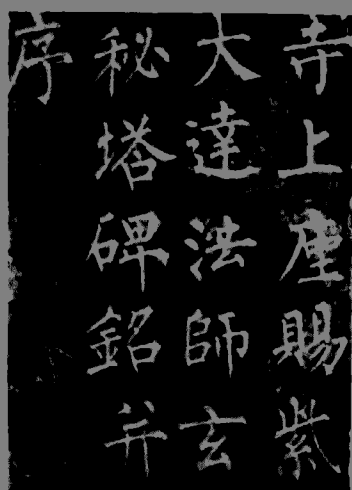 寺上座賜紫
大達法師玄
秘塔碑銘并
序